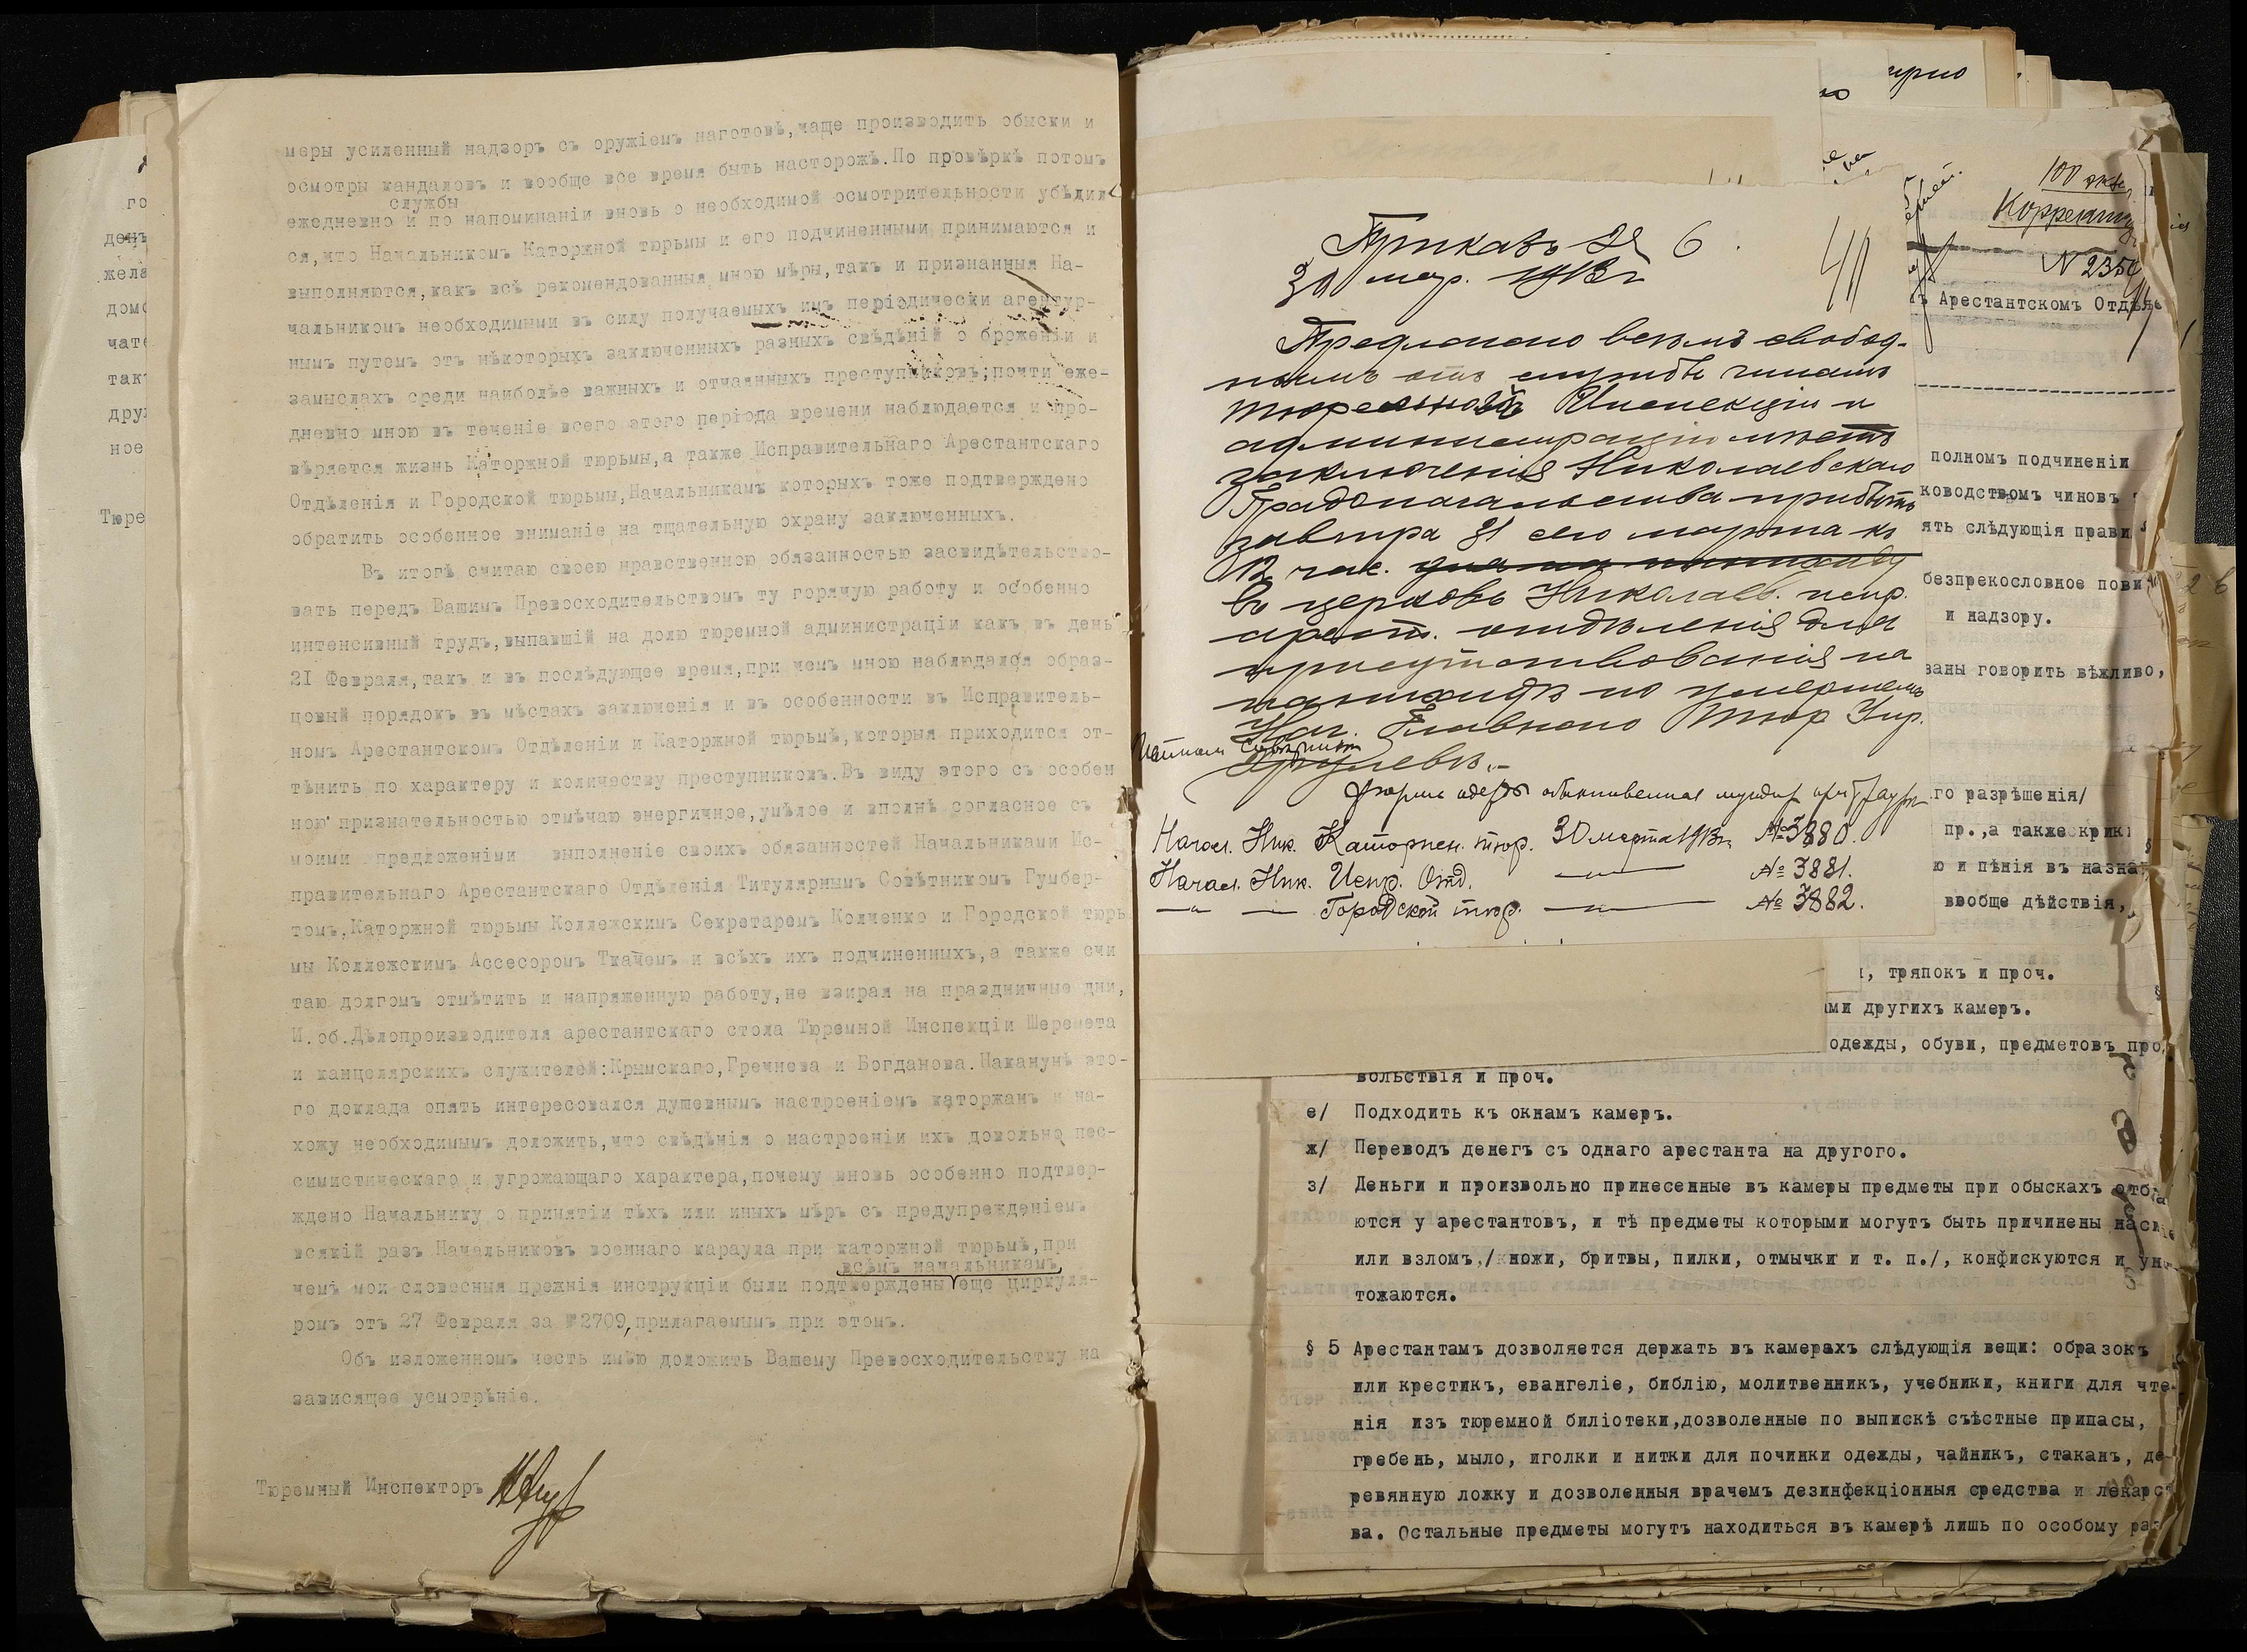 меры усиленный надзоръ съ оружіемъ наготовѣ,чаще производить обыски и
осмотры кандаловъ и вообще все время быть насторожѣ.По провѣркѣ потомъ
службы
ежедневно и по напоминаніи вновь о необходимой осмотрительности убѣдил
ся,что Начальникомъ Каторжной тюрьмы и его подчиненными принимаются и
выполняются,какъ всѣ рекомендованныя мною мѣры,такъ и признанныя На-
чальникомъ необходимыми въ силу получаемыхъ имъ періодически агентур-
нымъ путемъ отъ нѣкоторыхъ заключенныхъ разныхъ свѣдѣній о броженіи и
замыслахъ среди наиболѣе важныхъ и отчаянныхъ преступниковъ;почти еже-
дневно мною въ теченіе всего этого періода времени наблюдается и про-
вѣряется жизнь Каторжной тюрьмы,а также Исправительнаго Арестантскаго
Отдѣленія и Городской тюрьмы,Начальникамъ которыхъ тоже подтверждено
обратить особенное вниманіе на тщательную охрану заключенныхъ.
Въ итогѣ считаю своею нравственною обязанностью засвидѣтельство-
вать передъ Вашимъ Превосходительствомъ ту горячую работу и особенно
интенсивный трудъ,выпавшій на долю тюремной администраціи какъ въ день
21 Февраля,такъ и въ послѣдующее время,при чемъ мною наблюдался образ-
цовый порядокъ въ мѣстахъ заключенія и въ особенности въ Исправитель-
номъ Арестантскомъ Отдѣленіи и Каторжной тюрьмѣ,которыя приходится от-
тѣнить по характеру и количеству преступниковъ.Въ виду этого съ особен
ною признательностью отмѣчаю энергичное,умѣлое и вполнѣ согласное съ
моими предложеніми выполненіе своихъ обязанностей Начальниками Ис-
правительнаго Арестантскаго Отдѣленія Титулярнымъ Совѣтникомъ Гумбер-
томъ,Каторжной тюрьмы Коллежскимъ Секретаремъ Колченко и Городской тюрь
мы Коллежскимъ Ассесоромъ Ткачемъ и всѣхъ ихъ подчиненныхъ,а также счи
таю долгомъ отмѣтить и напряженную работу,не взирая на праздничные дни,
И.об.Дѣлопроизводителя арестантскаго стола Тюремной Инспекціи Шеремета
и канцелярскихъ служителей:Крымскаго,Гречнева и Богданова.Наканунѣ это-
го доклада опять интересовался душевнымъ настроеніемъ каторжанъ и на-
хожу необходимымъ доложить,что свѣдѣнія о настроеніи ихъ довольно пес-
симистическаго и угрожающаго характера,почему вновь особенно подтвер-
ждено Начальнику о принятіи тѣхъ или иныхъ мѣръ съ предупрежденіемъ
всякій разъ Начальниковъ военнаго караула при каторжной тюрьмѣ,при
всѣмъ начальникамъ
чемъ мои словесныя прежнія инструкціи были подтверждены еще циркуля-
ромъ отъ 27 Февраля за №2709,прилагаемымъ при этомъ.
Объ изложенномъ честь имѣю доложить Вашему Превосходительству на
зависящее усмотрѣніе.
Тюремный Инспекторъ
го
день
жела
домо
чате
такъ
друг
ное
Тюре
Приказъ № 6.
30 мар. 1913 г
Предлагаю всѣмъ свобод-
нымъ отъ службы чинамъ
тюремной Инспекціи и
администраціи мѣстъ
заключенія Николаевскаго
Градоначальства прибыть
завтра 31 сего марта къ
12 час. дня на панихиду
въ церковь Николаев. испр.
арест. отдѣленія для
присутствованія на
панихидѣ по умершемъ
Нач. Главнаго Тюр Упр.
Хрулевѣ.-
Форма одежды обыкновенная мундир
Начал. Ник. Каторжн. тюр. 30 марта 1913 г. № 3880.
Начал. Ник. Испр. Отд. —„— № 3881.
—„— — Городской тюр. —„— № 3882.
100 экз.
N 2354
Арестантскомъ Отдѣле
полномъ подчиненіи
ководствомъ чиновъ
ять слѣдующія прави
безпрекословное пови
и надзору.
заны говорить вѣжливо,
го разрѣшенія/
пр.,а также крик
ю и пѣнія въ назна
вообще дѣйствія,
, тряпокъ и проч.
ами другихъ камеръ.
одежды, обуви, предметовъ про
вольствія и проч.
е/ Подходить къ окнамъ камеръ.
ж/ Переводъ денегъ съ однаго арестанта на другого.
з/ Деньги и произвольно принесенные въ камеры предметы при обыскахъ отбира
ются у арестантовъ, и тѣ предметы которыми могутъ быть причинены насиліе
или взломъ,/ ножи, бритвы, пилки, отмычки и т. п./, конфискуются и уни-
тожаются.
§ 5 Арестантамъ дозволяется держать въ камерахъ слѣдующія вещи: образокъ
или крестикъ, евангеліе, библію, молитвенникъ, учебники, книги для чте-
нія изъ тюремной биліотеки,дозволенные по выпискѣ съѣстные припасы,
гребень, мыло, иголки и нитки для починки одежды, чайникъ, стаканъ, де-
ревянную ложку и дозволенныя врачемъ дезинфекціонныя средства и лекарст
ва. Остальные предметы могутъ находиться въ камерѣ лишь по особому раз